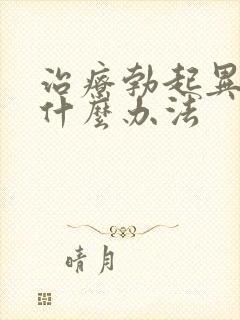 治療勃起異
什麼办法
晴月